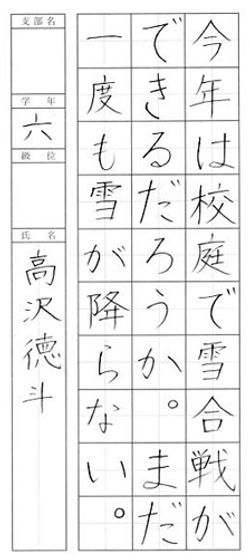 今年は校庭で雪合戦が
できるだろうか。まだ
一度も雪が降らない。
支部名
学年
六
級位
氏名
高沢徳斗